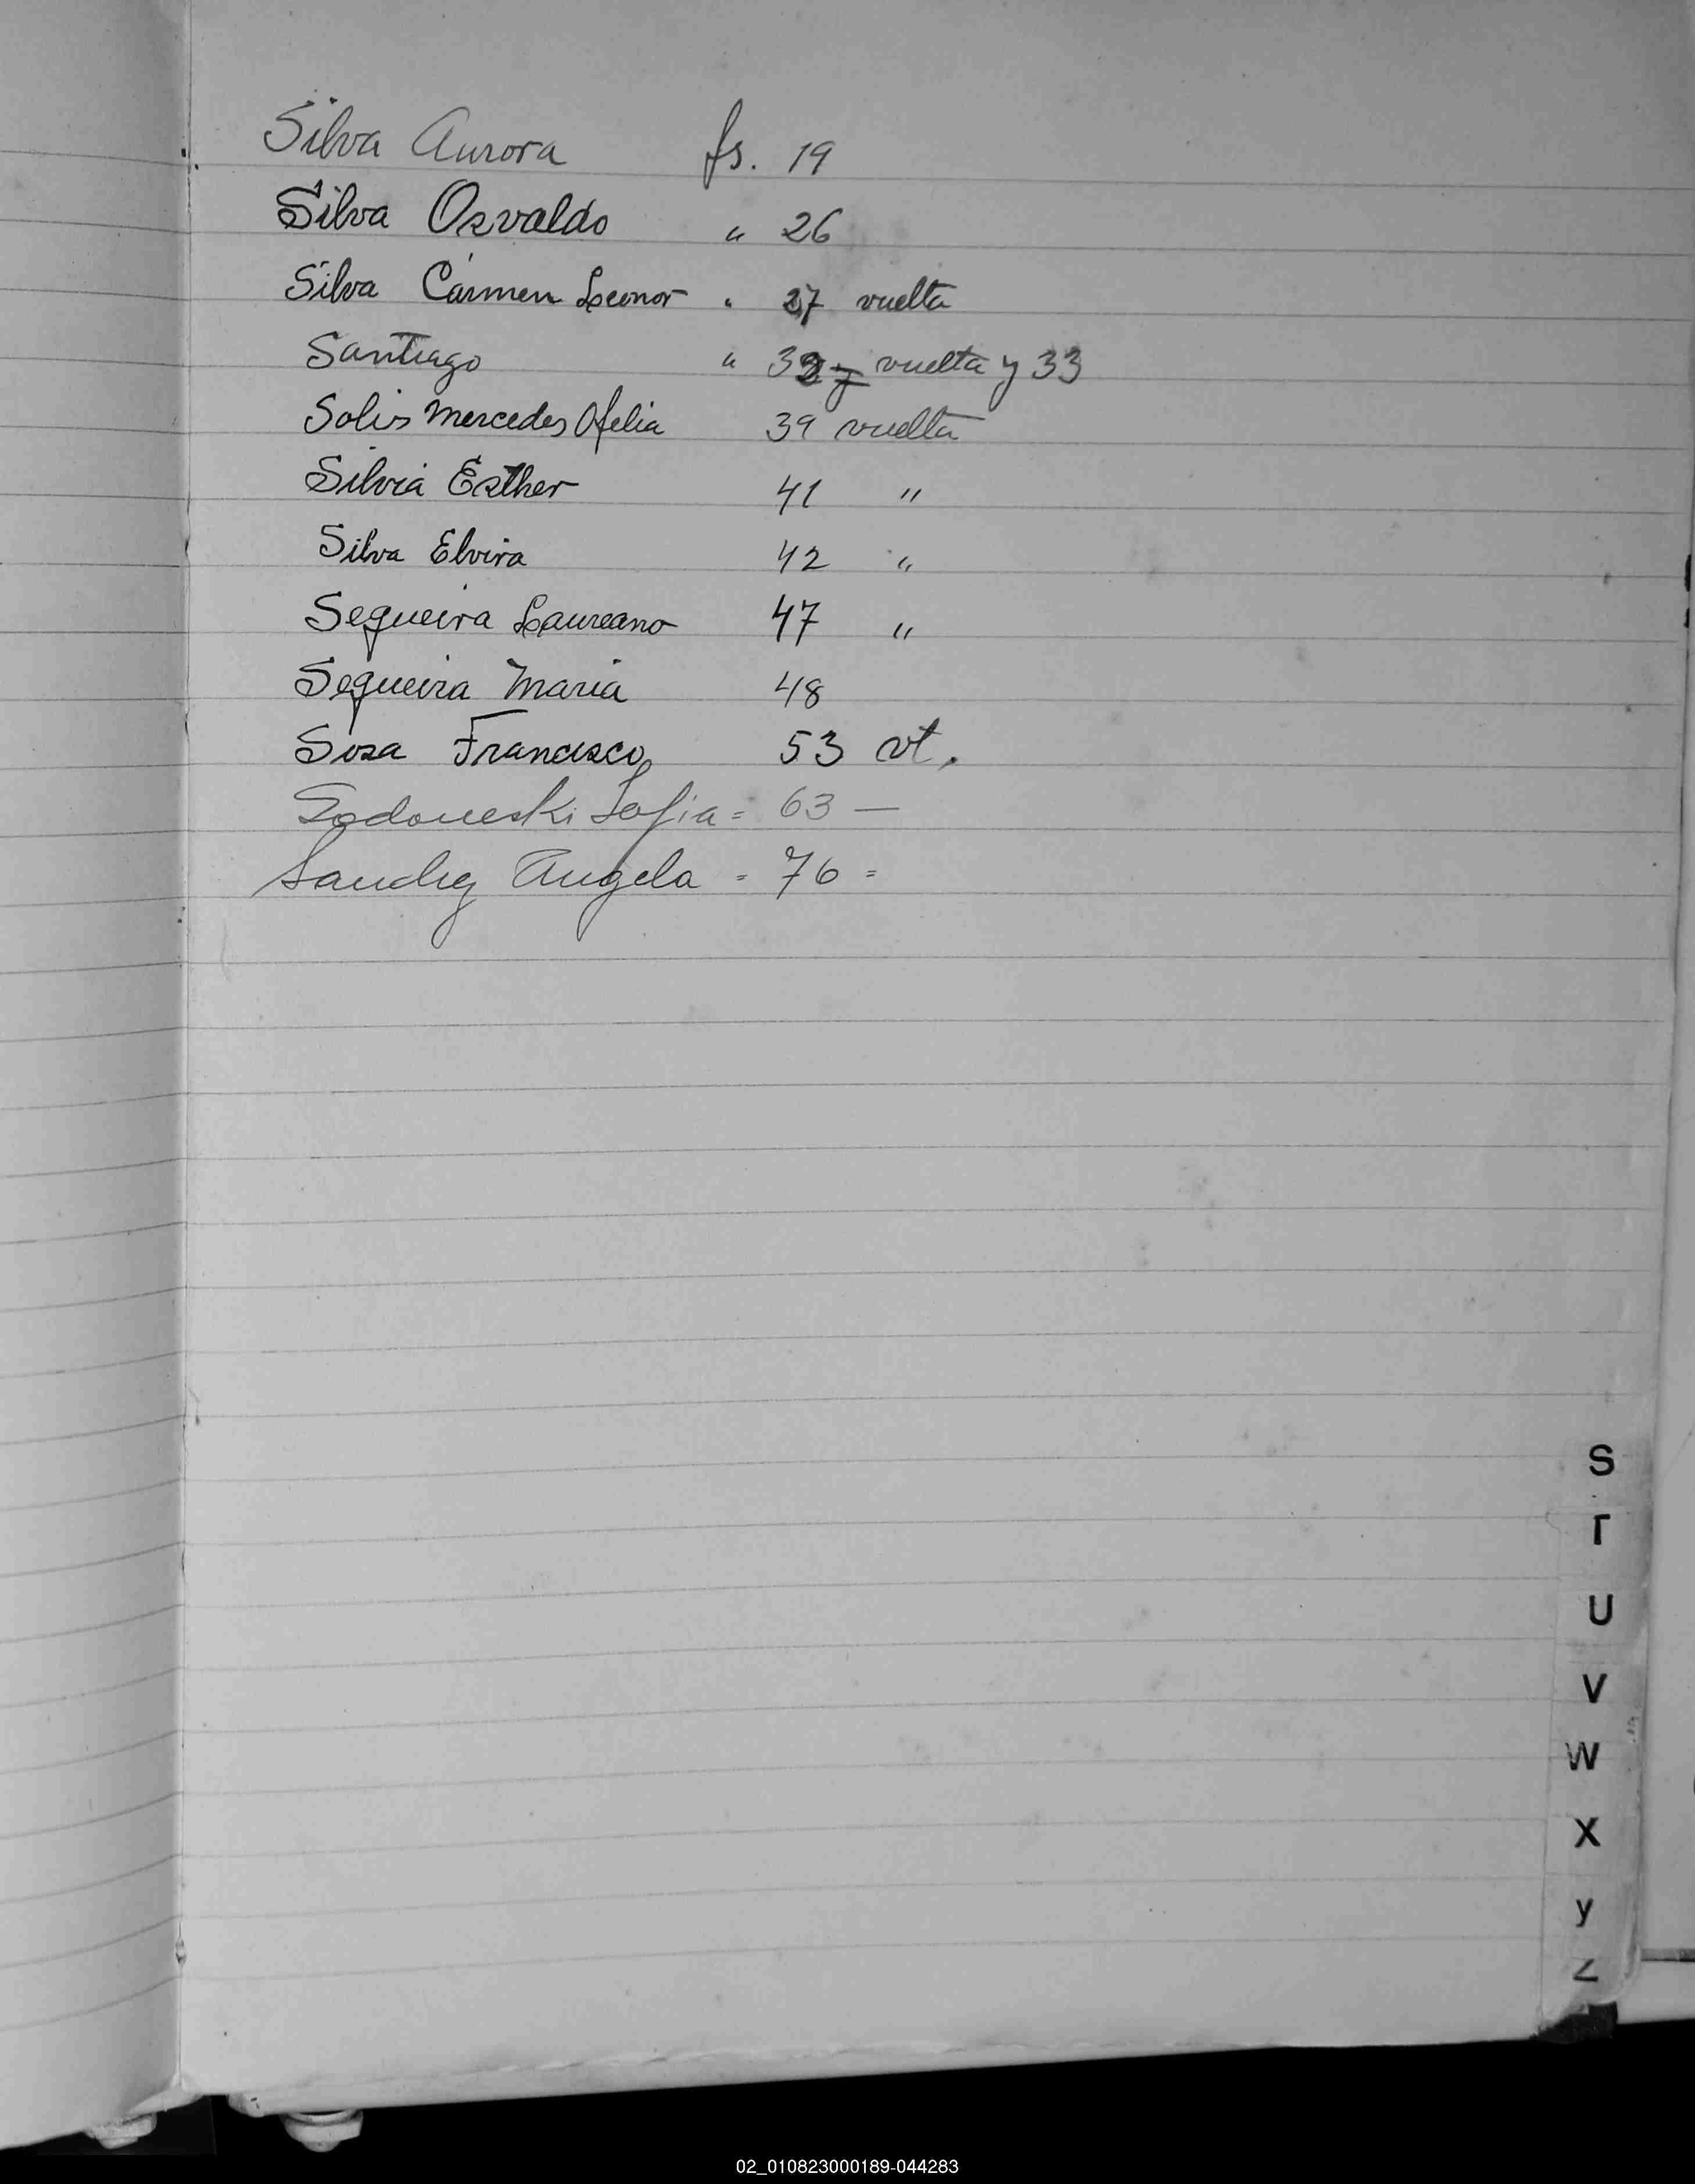 Silva Aurora fs. 19
Silva Osvaldo " 26
Silva Cármen Leonor " 27 vuelta
Santiago " 32 vuelta y 33
Solis Mercedes Ofelia 39 vuelta
Silvia Esther 41 "
Silva Elvira 42 "
Sequeira Laureano 47 "
Sequeira Maria 48
Sosa Francisco 53 vt.
Sofia = 63 —
Angela = 76 =
S
T
U
V
W
X
y
Z
02_010823000189-044283